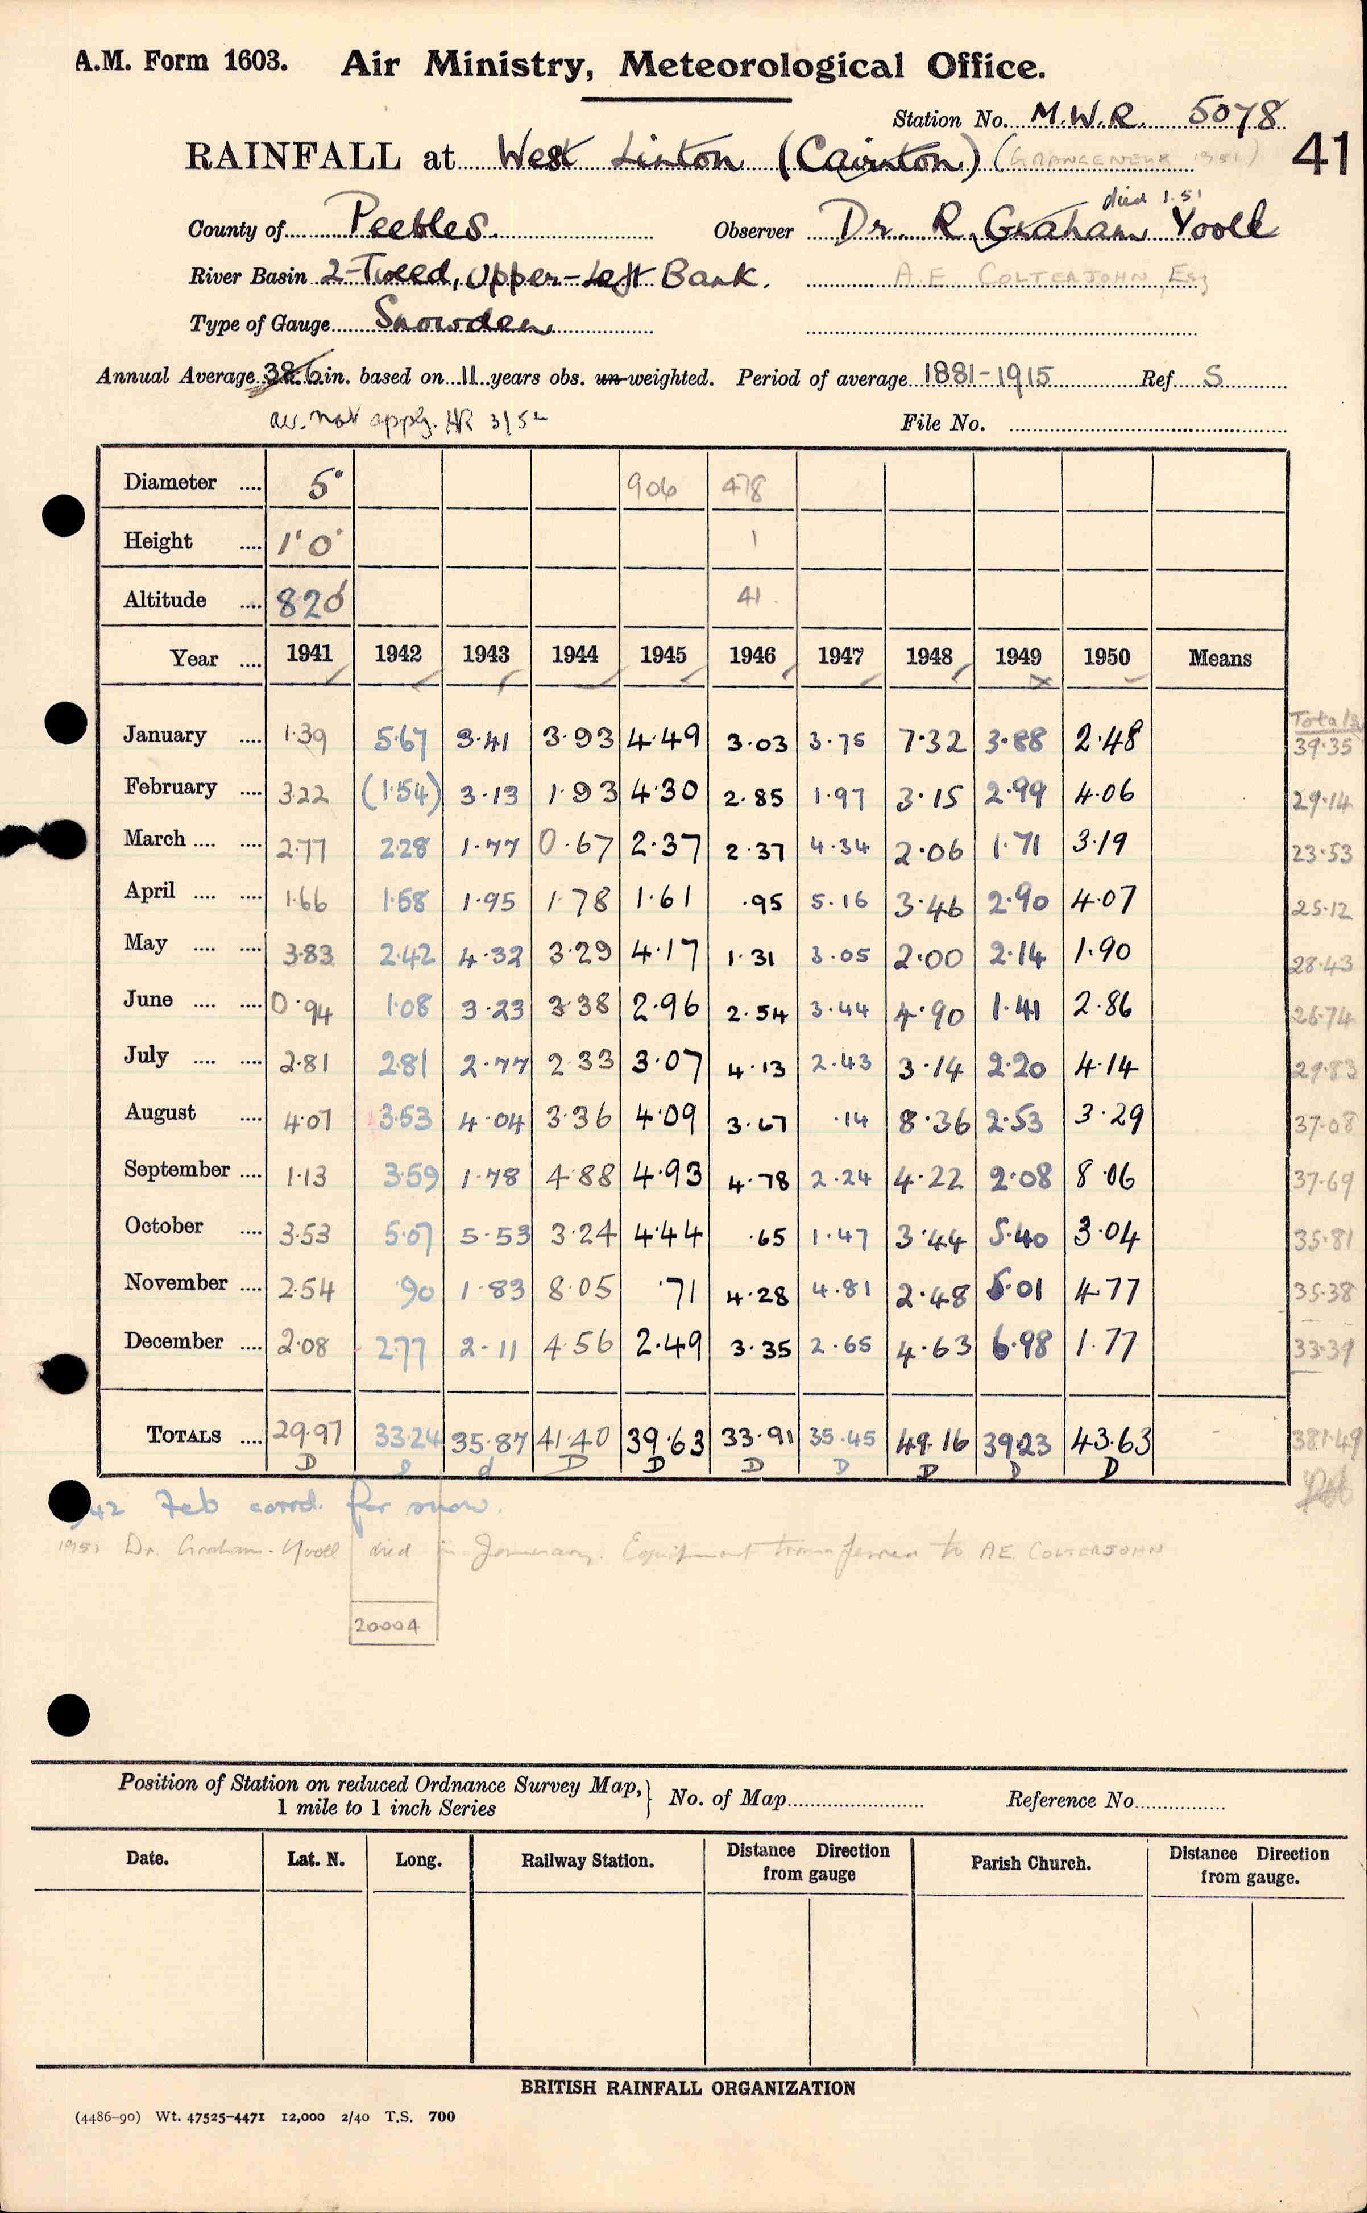 A.M. Form 1603. Air Ministry, Meteorological Office.
Station No. M.W.R. 5078
RAINFALL at West Linton (Cairnton) 41
died 1.51
County of Peebles. Observer Dr. R. Graham Yooll
River Basin 2-Tweed, Upper-Left Bank. A.E COLTERJOHN, Esq
Type of Gauge Snowden
Annual Average 38.6 in. based on 11 years obs. un-weighted. Period of average 1881-1915 Ref S
av. not app. 3/52 File No.
Diameter .... 5" 906 478
Height .... 1' 0" 1
Altitude .... 820' 41
Year .... 1941 1942 1943 1944 1945 1946 1947 1948 1949 1950 Means
Totals
January .... 1.39 5.67 3.41 3.93 4.49 3.03 3.75 7.32 3.88 2.48 39.35
February .... 3.22 (1.54) 3.13 1.93 4.30 2.85 1.97 3.15 2.99 4.06 29.14
March .... .... 2.77 2.28 1.77 0.67 2.37 2.37 4.34 2.06 1.71 3.19 23.53
April .... .... 1.66 1.58 1.95 1.78 1.61 .95 5.16 3.46 2.90 4.07 25.12
May .... .... 3.83 2.42 4.32 3.29 4.17 1.31 3.05 2.00 2.14 1.90 28.43
June .... .... 0.94 1.08 3.23 3.38 2.96 2.54 3.44 4.90 1.41 2.86 26.74
July .... .... 2.81 2.81 2.77 2.33 3.07 4.13 2.43 3.14 2.20 4.14 29.83
August .... 4.07 3.53 4.04 3.36 4.09 3.67 .14 8.36 2.53 3.29 37.08
September .... 1.13 3.59 1.78 4.88 4.93 4.78 2.24 4.22 2.08 8.06 37.69
October .... 3.53 5.07 5.53 3.24 4.44 .65 1.47 3.44 5.40 3.04 35.81
November .... 2.54 .90 1.83 8.05 .71 4.28 4.81 2.48 5.01 4.77 35.38
December .... 2.08 2.77 2.11 4.56 2.49 3.35 2.65 4.63 6.98 1.77 33.39
TOTALS .... 29.97 33.24 35.87 41.40 39.63 33.91 35.45 49.16 39.23 43.63 381.49
D D D D D D D D
42 Feb corrd. for snow.
1951 Dr. Graham-Yooll died in January. Equipment transferred to AE. COLTERJOHN
20004
Position of Station on reduced Ordnance Survey Map, 1 mile to 1 inch Series } No. of Map Reference No.
Date. Lat. N. Long. Railway Station. Distance from gauge Direction Parish Church. Distance Direction from gauge.
BRITISH RAINFALL ORGANIZATION
(4486-90) Wt. 47525-4471 12,000 2/40 T.S. 700